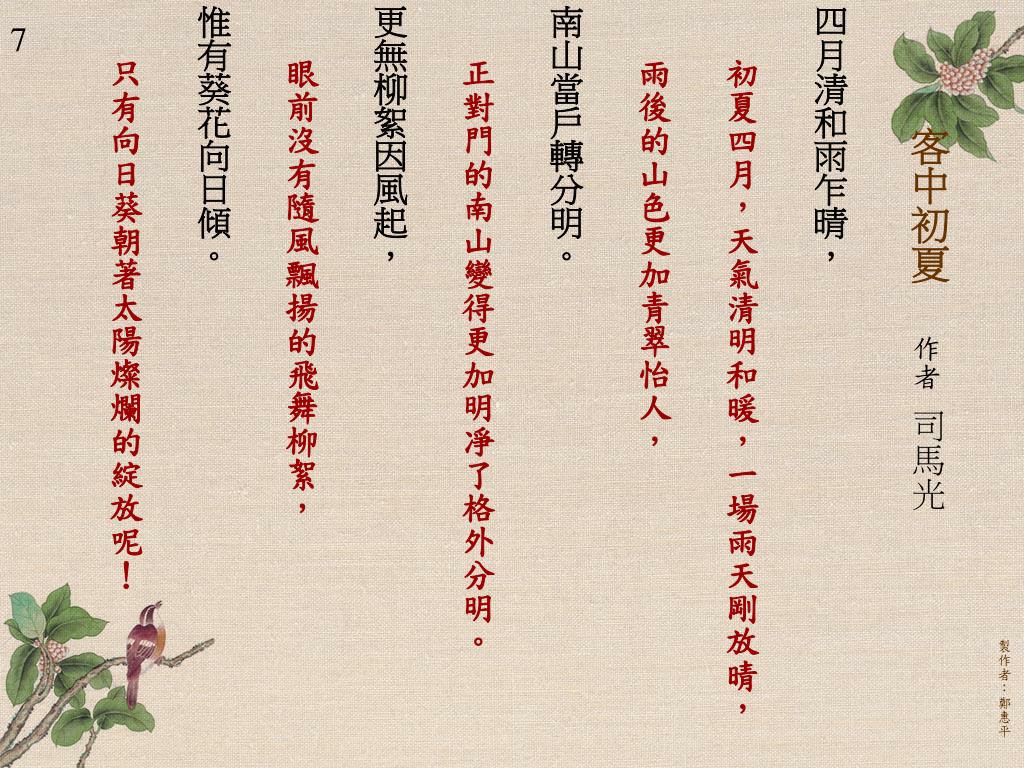 客中初夏 作者 司馬光
四月清和雨乍晴，
初夏四月，天氣清明和暖，一場雨天剛放晴，
雨後的山色更加青翠怡人，
南山當戶轉分明。
正對門的南山變得更加明凈了格外分明。
更無柳絮因風起，
眼前沒有隨風飄揚的飛舞柳絮，
惟有葵花向日傾。
只有向日葵朝著太陽燦爛的綻放呢！
製作者：鄭惠平
7